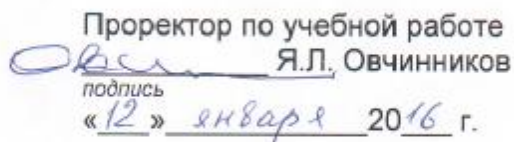 Проректор по учебной работе
Я.Л. Овчинников
подпись
«12» января 2016 г.